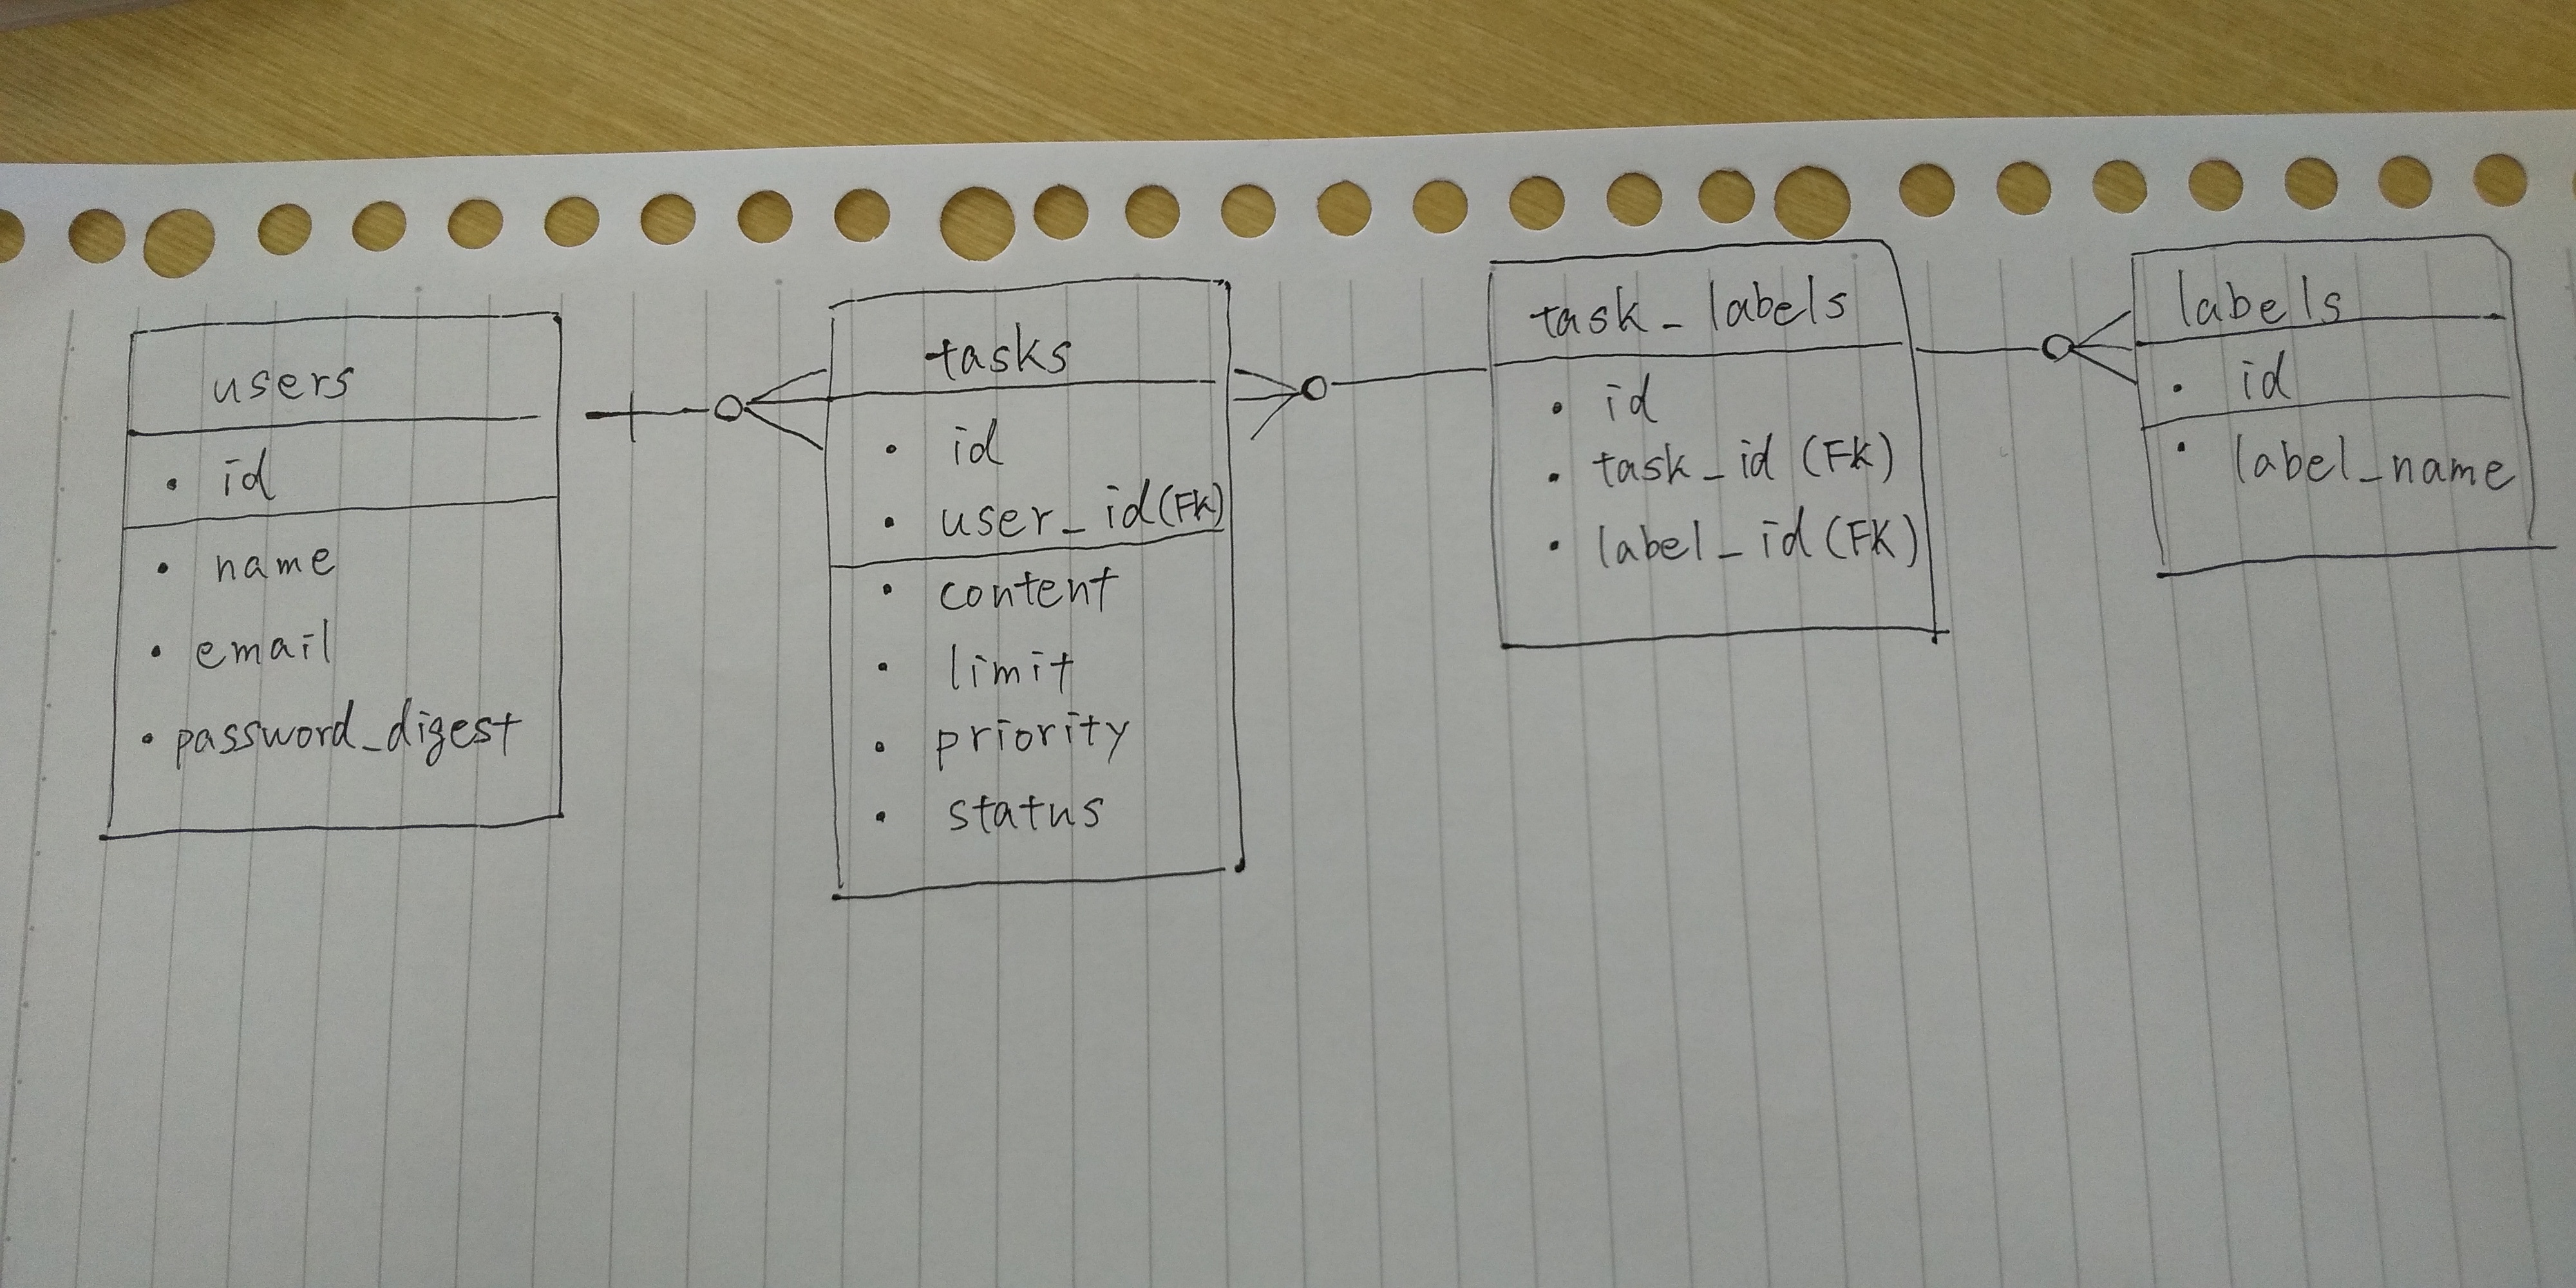 users
• id
• name
• email
• password_digest
tasks
• id
• user_id (FK)
• content
• limit
• priority
• status
task_labels
• id
• task_id (FK)
• label_id (FK)
labels
• id
• label_name